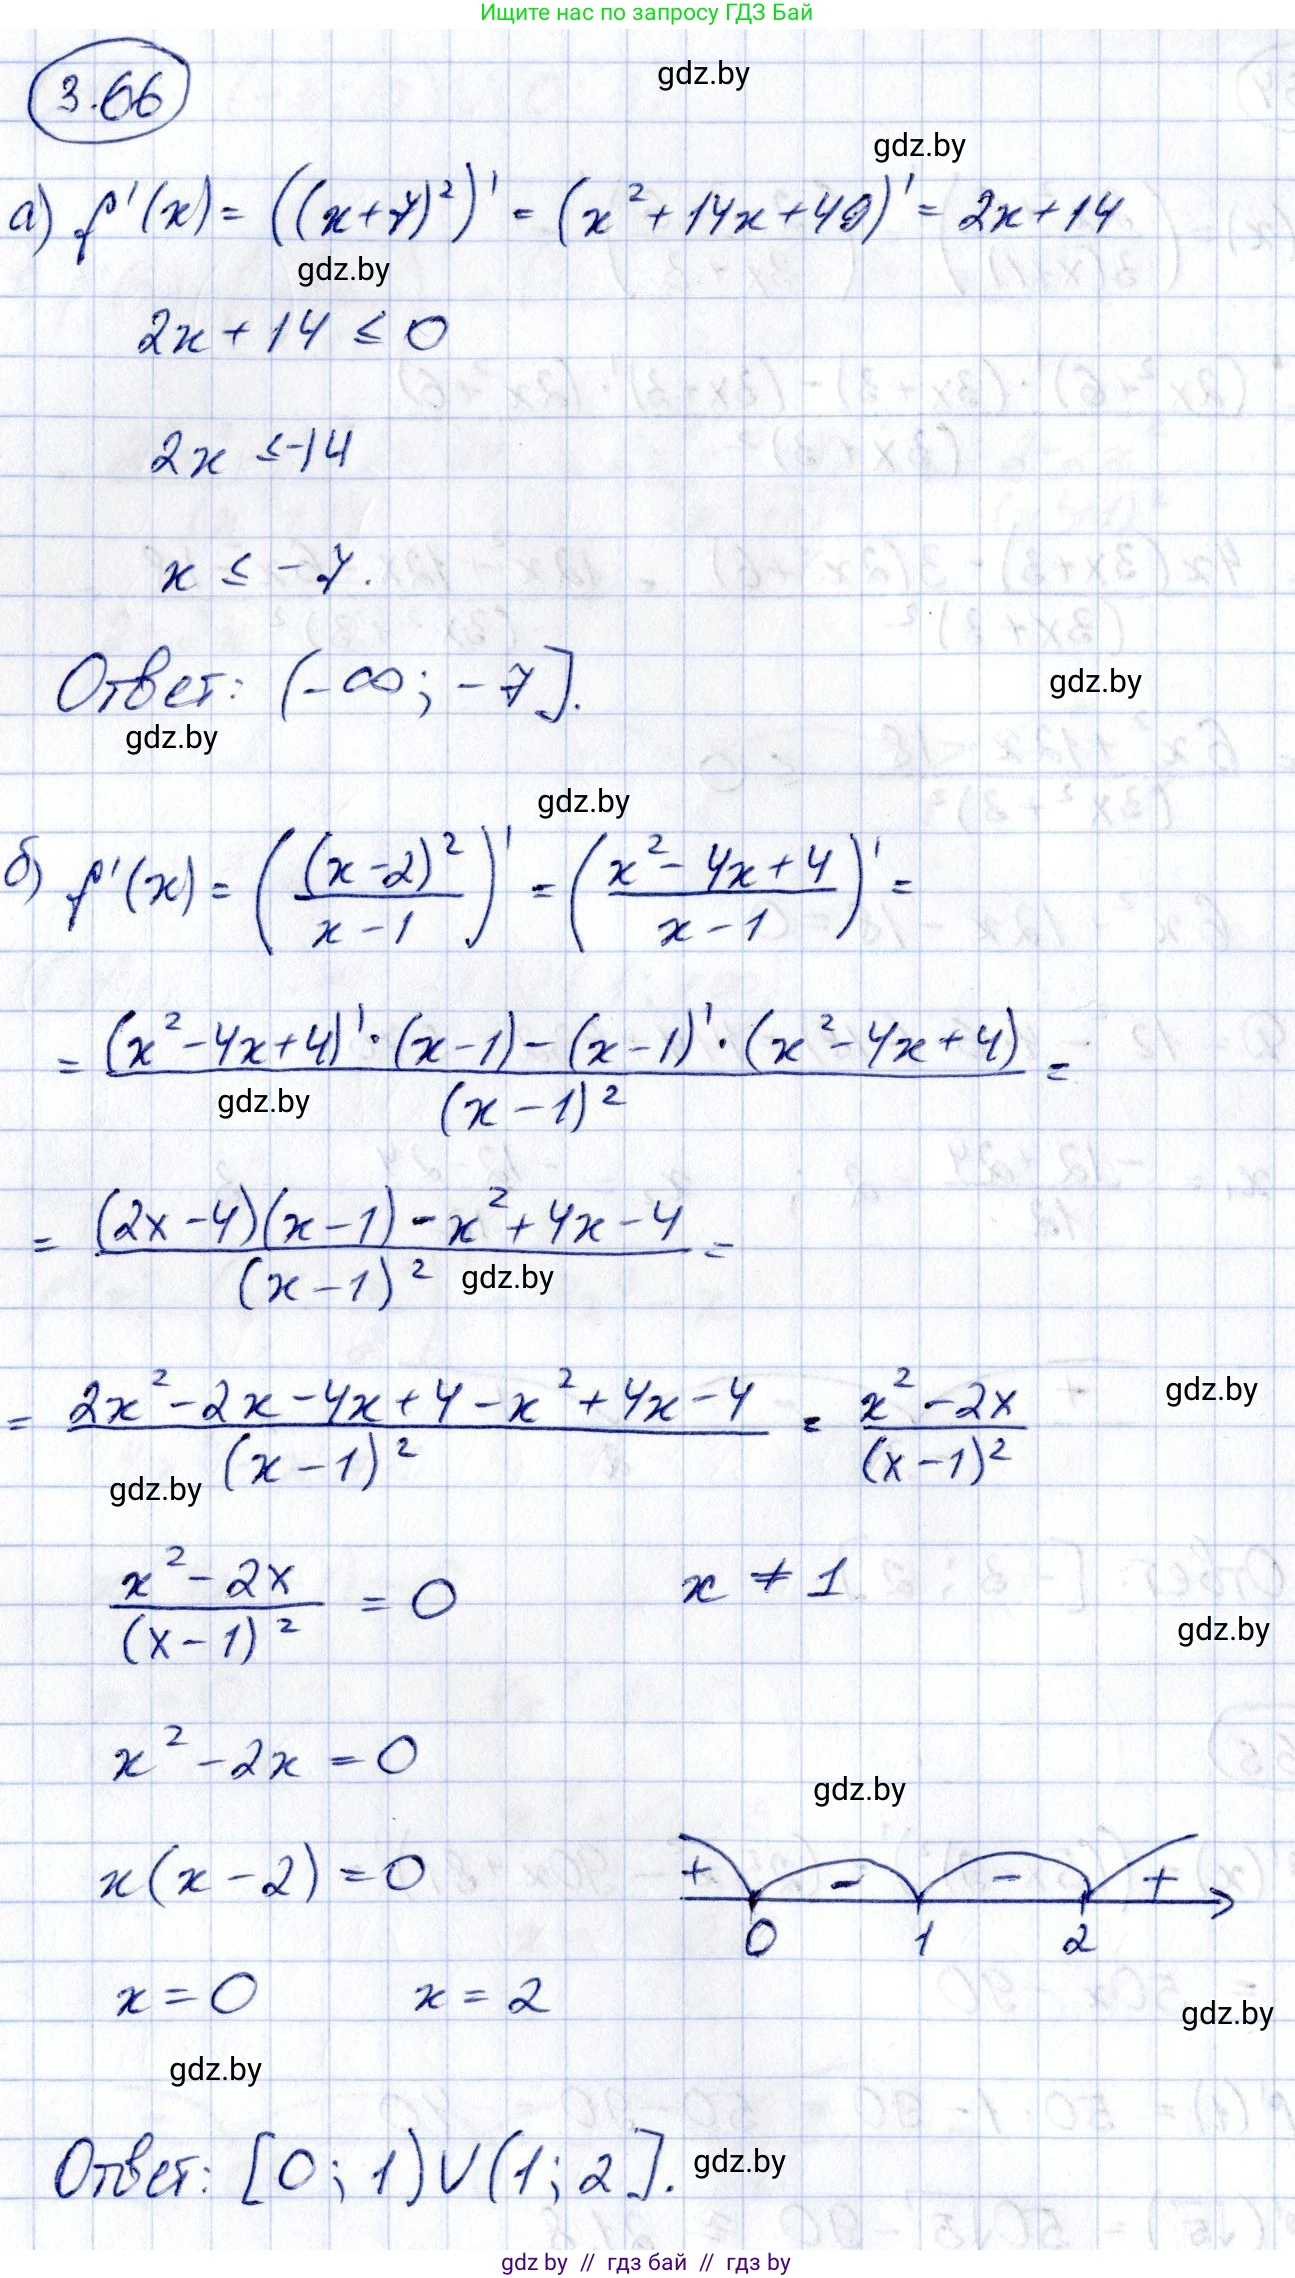 Ищите нас по запросу ГДЗ Бай
3.66
gdz.by
gdz.by
а) f'(x) = ((x+7)²)' = (x²+14x+49)' = 2x+14
gdz.by
2x+14 ≤ 0
2x ≤ -14
x ≤ -7.
Ответ: (-∞; -7].
gdz.by
gdz.by
gdz.by
б) f'(x) = ((x-2)²/(x-1))' = ((x²-4x+4)/(x-1))' =
= ((x²-4x+4)'·(x-1)-(x-1)'·(x²-4x+4))/(x-1)² =
gdz.by
= ((2x-4)(x-1)-x²+4x-4)/(x-1)² =
gdz.by
= (2x²-2x-4x+4-x²+4x-4)/(x-1)² = (x²-2x)/(x-1)²
gdz.by
gdz.by
(x²-2x)/(x-1)² = 0 x ≠ 1
gdz.by
x²-2x=0
gdz.by
x(x-2)=0
+ - - +
0 1 2
x=0 x=2
gdz.by
gdz.by
Ответ: [0; 1)∪(1; 2].
gdz.by
gdz by // гдз бай // гдз by